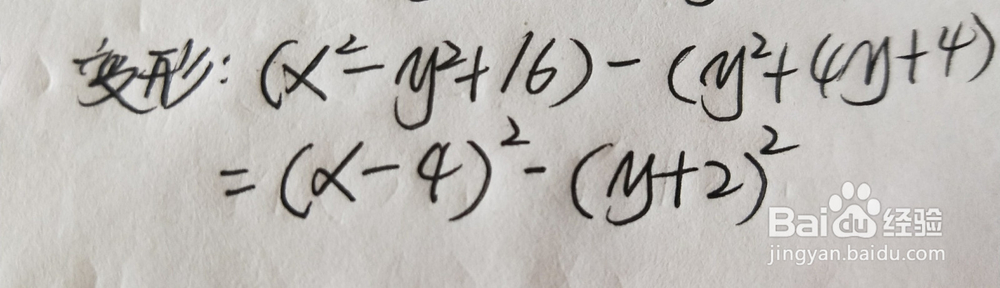 变形: (x²-y²+16)-(y²+4y+4)
=(x-4)²-(y+2)²
Baidu经验
jingyan.baidu.com